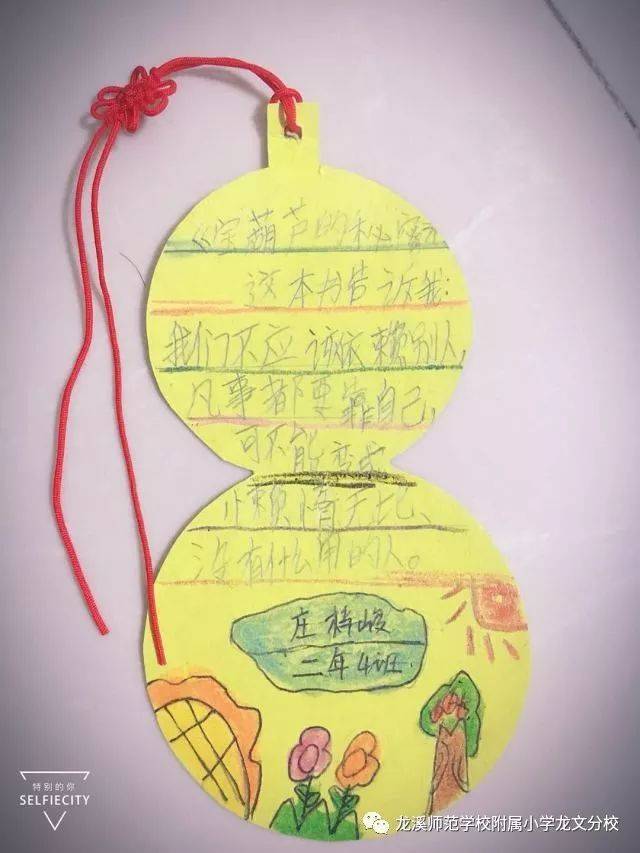 《宝葫芦的秘密》
这本书告诉我:
我们不应该依赖别人,
凡事都要靠自己,
可不能变成
懒惰无比、
没有什么用的人。
庄梓峻
二年4班
特别的你
SELFIECITY
龙溪师范学校附属小学龙文分校